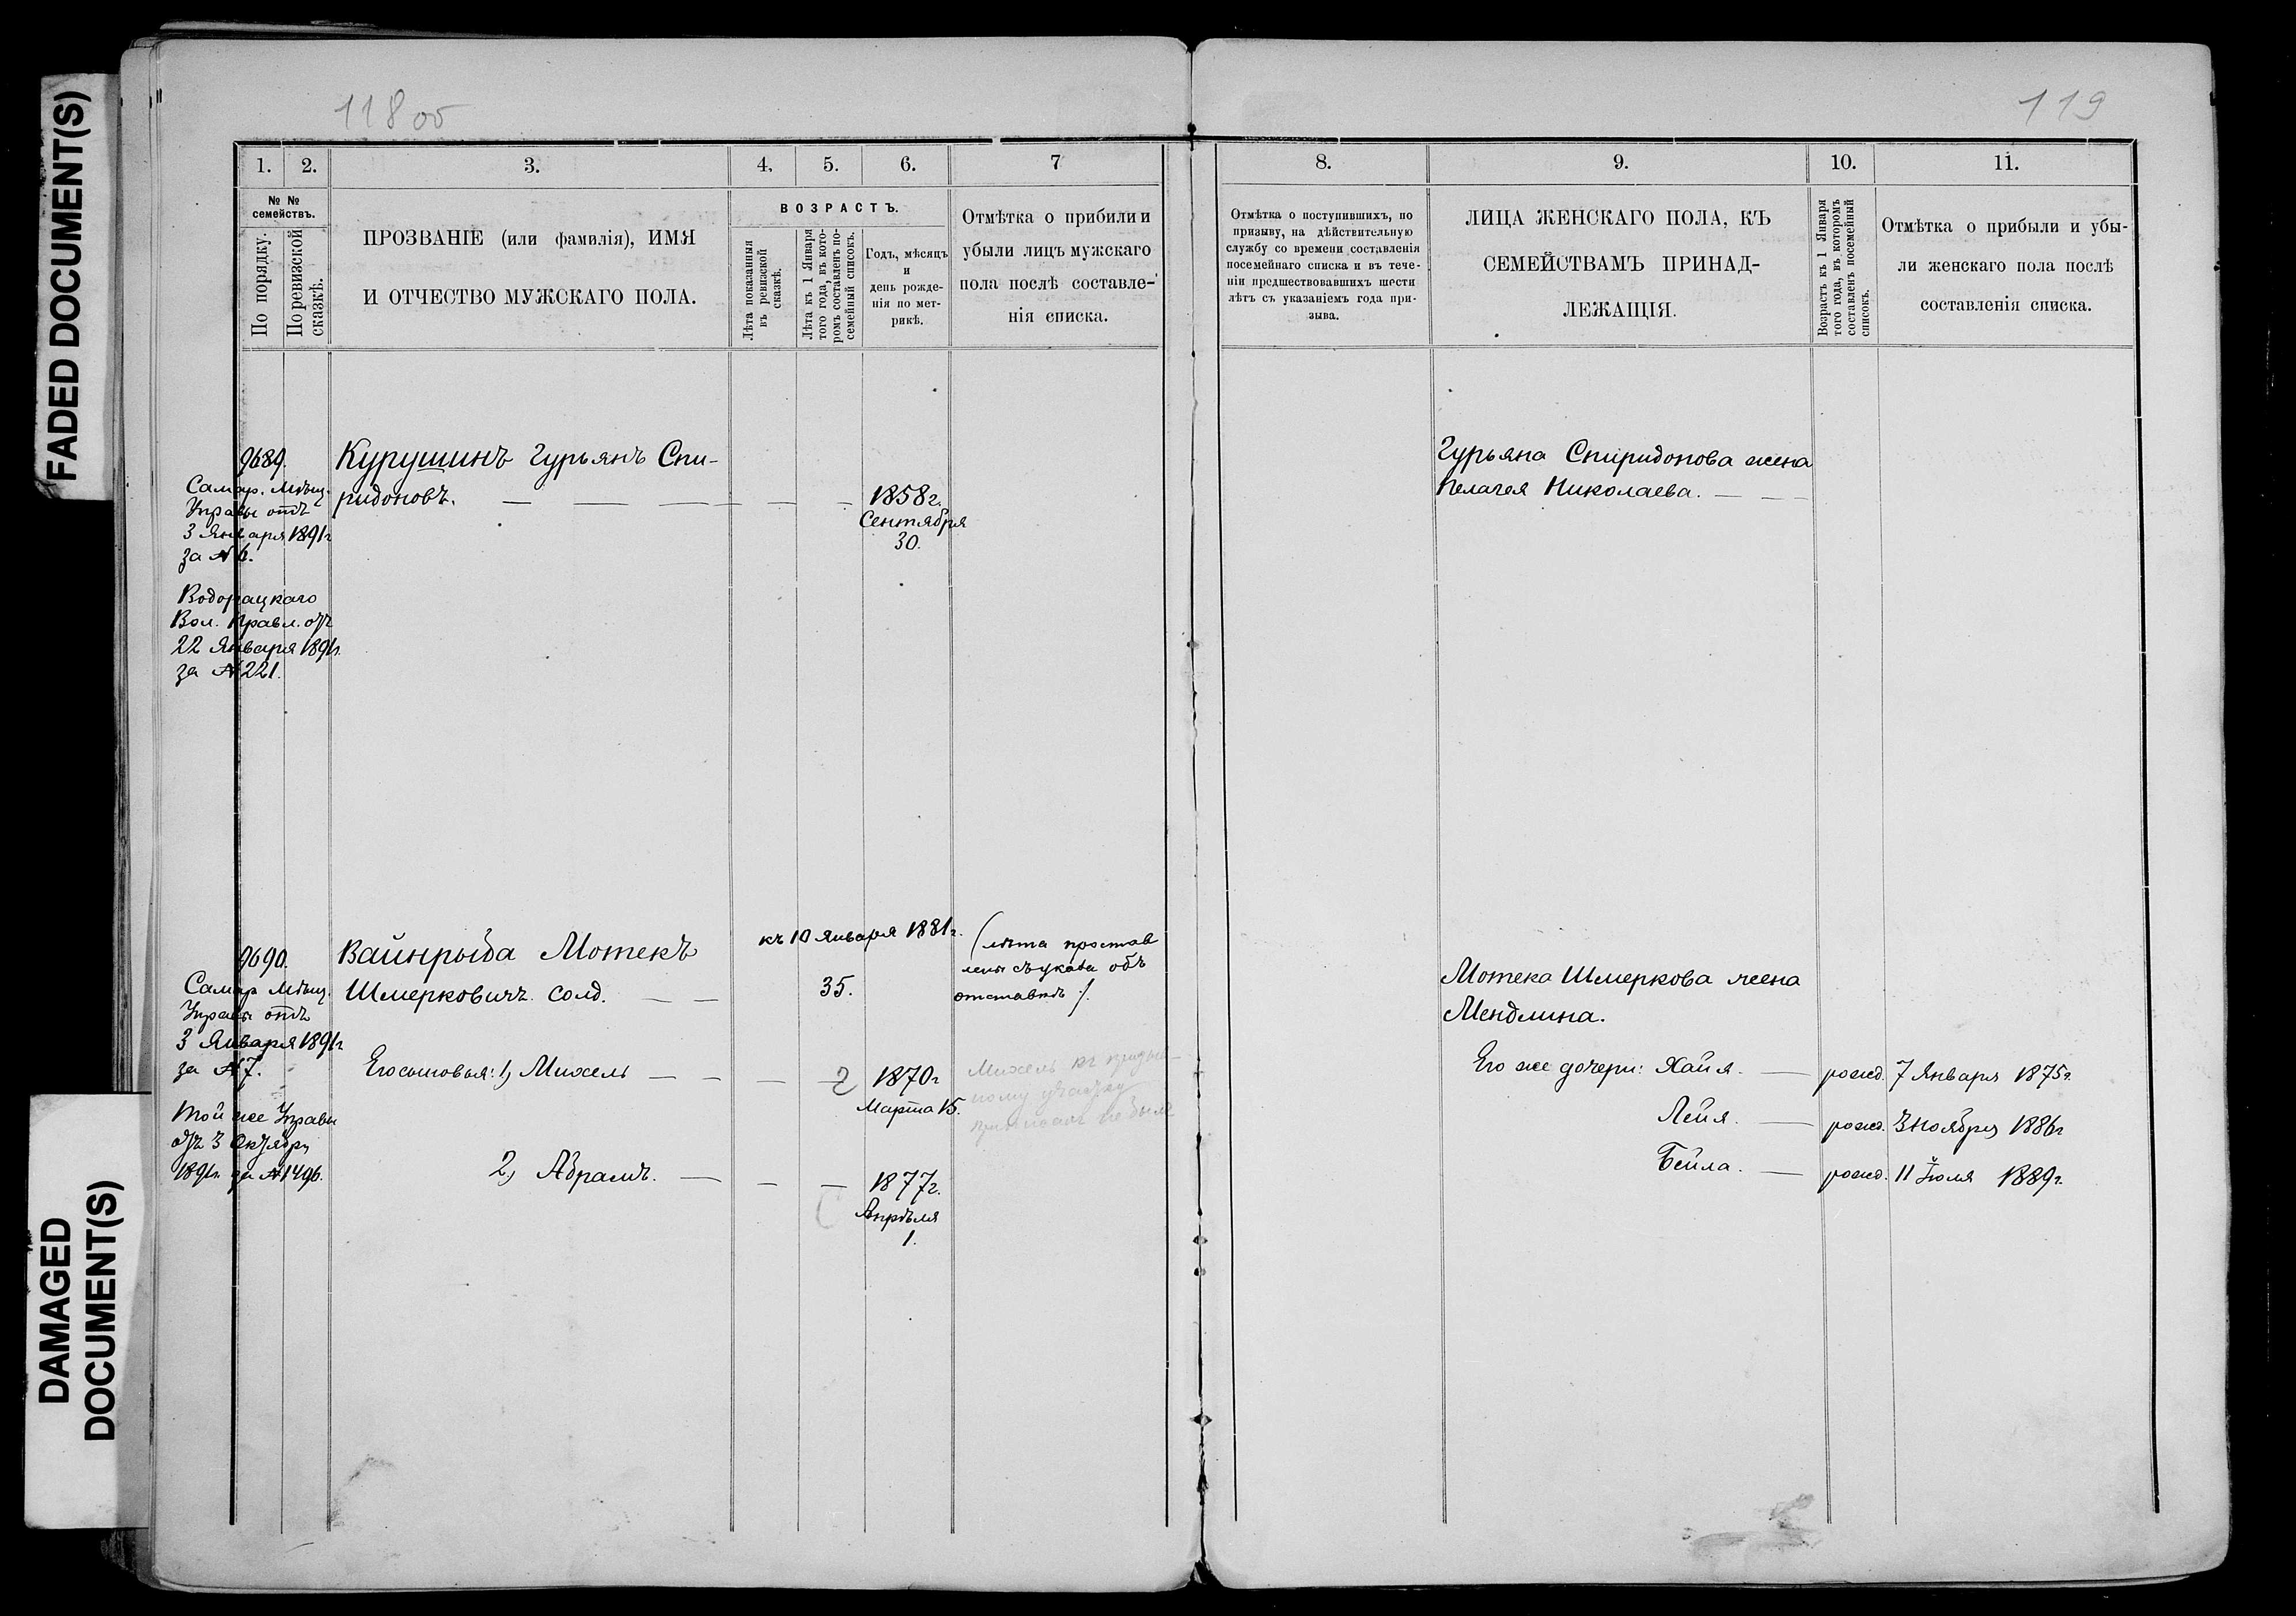 FADED DOCUMENT(S)
DAMAGED
DOCUMENT(S)
118 об
119
1.
2.
3.
4.
5.
6.
7
№ №
семействъ.
По порядку.
По ревизской
сказкѣ.
ПРОЗВАНІЕ (или фамилія), ИМЯ
И ОТЧЕСТВО МУЖСКАГО ПОЛА.
ВОЗРАСТЪ.
Лѣта показанныя
въ ревизской
сказкѣ.
Лѣта къ 1 Января
того года, въ кото-
ромъ составленъ по-
семейный списокъ.
Годъ, мѣсяцъ
и
день рожде-
нія по мет-
рикѣ.
Отмѣтка о прибыли и
убыли лицъ мужскаго
пола послѣ составле-
нія списка.
8.
9.
10.
11.
Отмѣтка о поступившихъ, по
призыву, на дѣйствительную
службу со времени составленія
посемейнаго списка и въ тече-
ніи предшествовавшихъ шести
лѣтъ съ указаніемъ года при-
зыва.
ЛИЦА ЖЕНСКАГО ПОЛА, КЪ
СЕМЕЙСТВАМЪ ПРИНАД-
ЛЕЖАЩІЯ.
Возрастъ къ 1 Января
того года, въ которомъ
составленъ посемейный
списокъ.
Отмѣтка о прибыли и убы-
ли женскаго пола послѣ
составленія списка.
9689.
Самар. Мѣщ.
Управы отъ
3 Января 1891г
за № 6.
Водорацкаго
Вол. Правл. отъ
22 Января 1891г.
за № 221.
Курушинъ Гурьянъ Спи-
ридоновъ. — — — — —
1858г.
Сентября
30.
Гурьяна Спиридонова жена
Пелагея Николаева. — — —
9690.
Самар Мѣщ.
Управы отъ
3 Января 1891г
за № 7.
Той же Управы
отъ 3 Октября
1891г. за № 1496.
Вайнрыба Мотекъ
Шмерковичъ солд. — —
къ 10 Января 1881г.
35.
(лѣта простав
лены съ указа объ
отставкѣ /.
Его сыновья: 1) Михель — — — —
2
1870г
Марта 15.
Михель къ призыв-
ному участку
приписанъ не былъ
2) Абрамъ. — — —
1877г.
Апрѣля
1.
Мотека Шмеркова жена
Мендлина.
Его же дочери: Хайя. — рожд. 7 Января 1875г.
Лейя. — рожд. 3 Ноября 1886г
Бейла. — рожд. 11 Іюля 1889г.